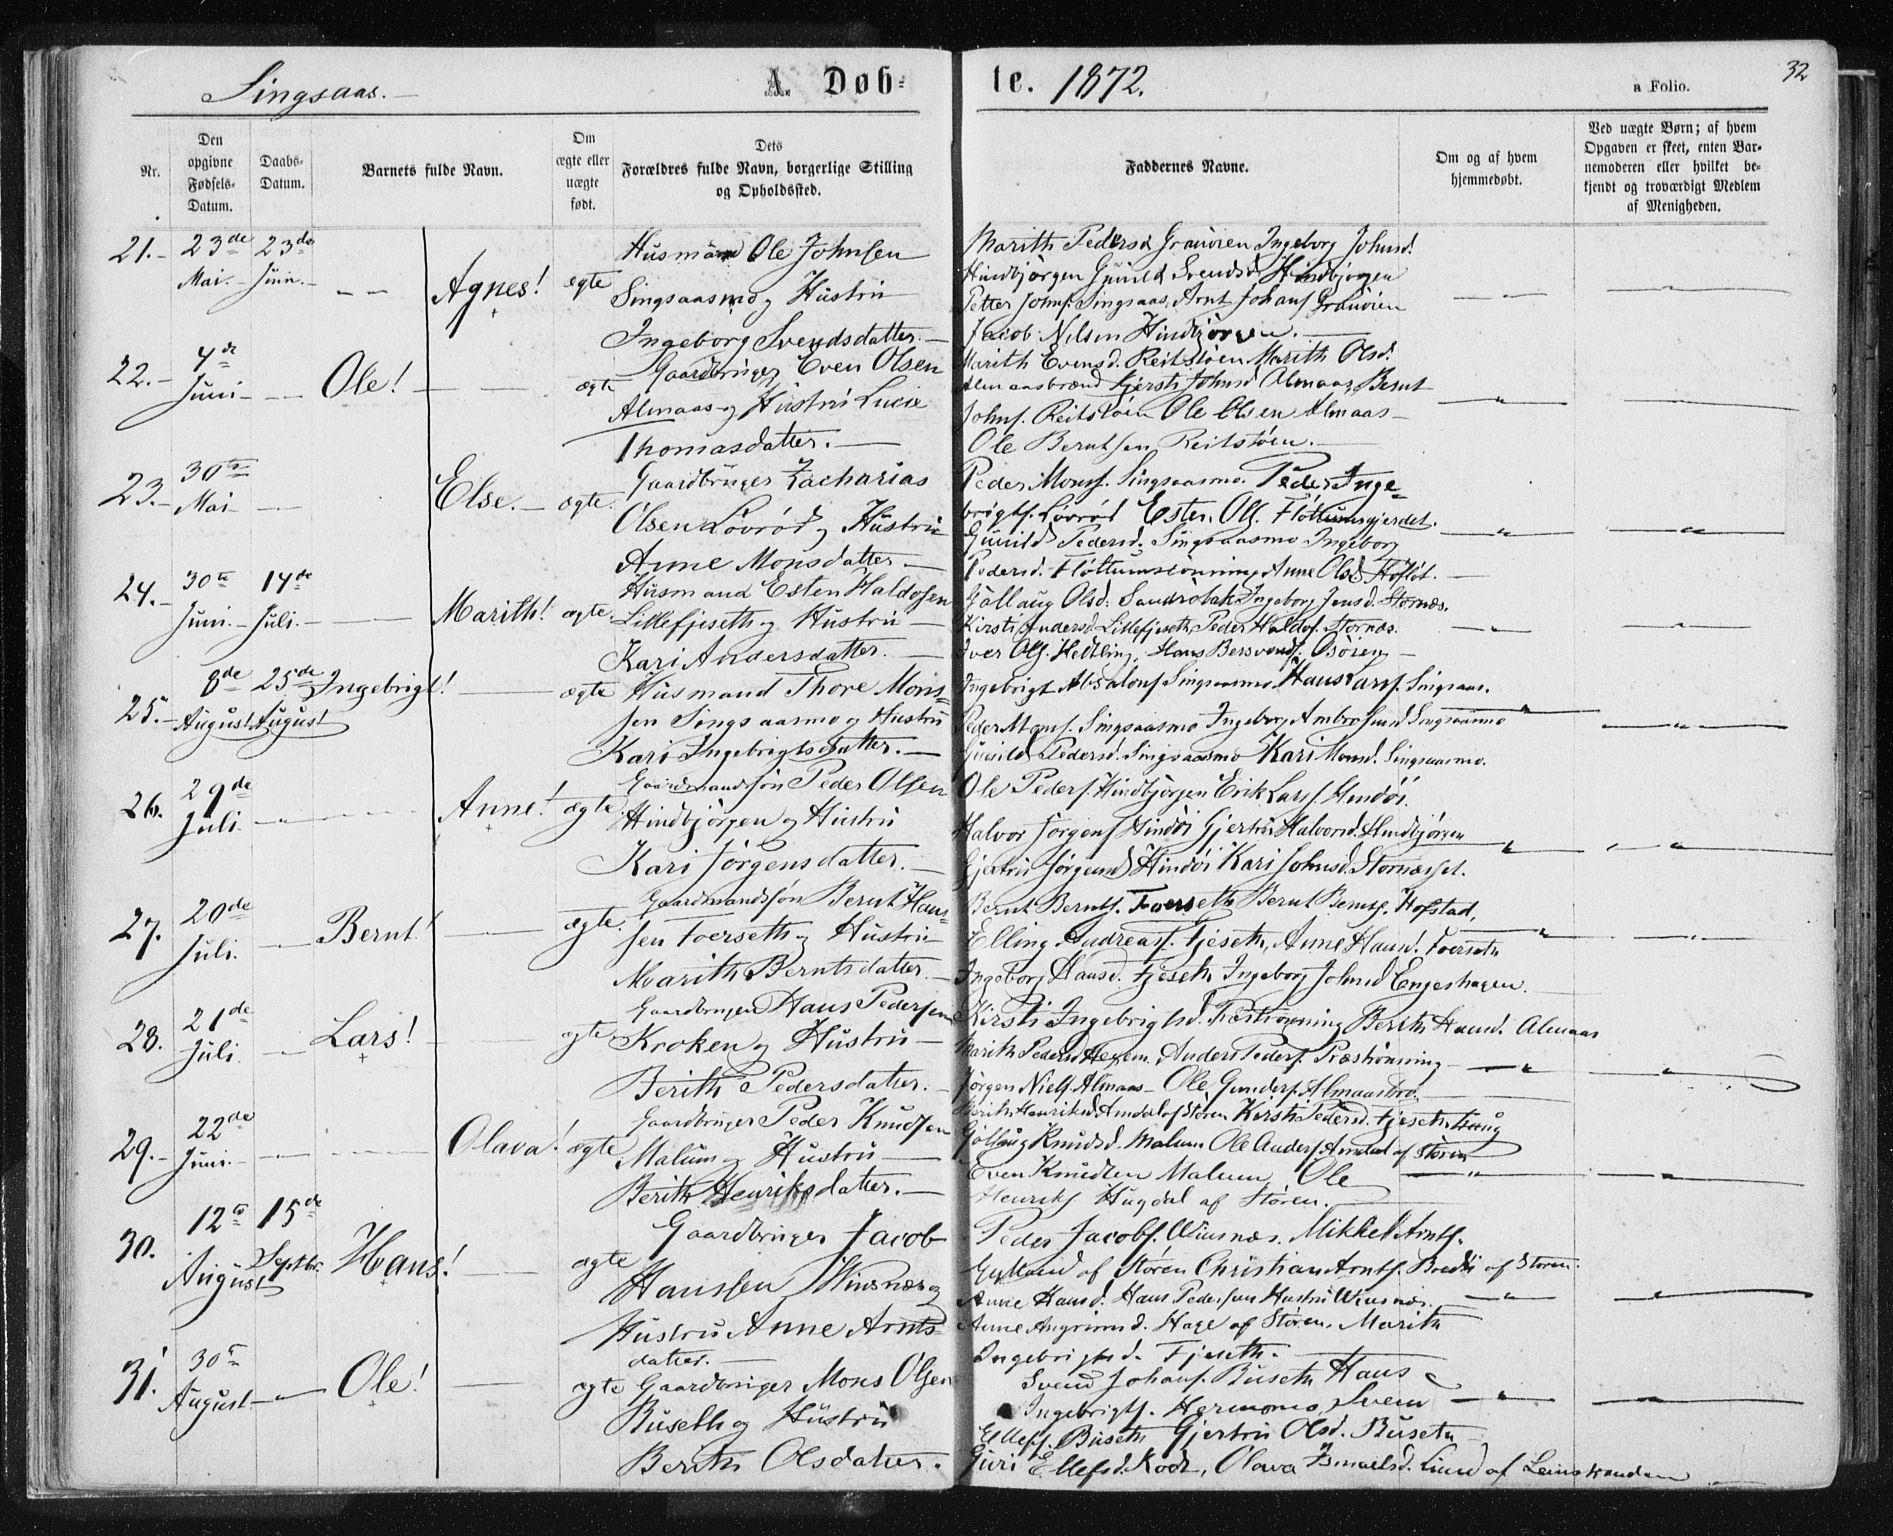 Singsaas.
A. Døb=
te. 1872.
a Folio.
32
Nr.
Den opgivne Fødsels-Datum.
Daabs-Datum.
Barnets fulde Navn.
Om ægte eller uægte født.
Dets Forældres fulde Navn, borgerlige Stilling og Opholdssted.
Faddernes Navne.
Om og af hvem hjemmedøbt.
Ved uægte Børn; af hvem Opgaven er skeet, enten Barnemoderen eller hvilket bekjendt og troværdigt Medlem af Menigheden.
21. 23de Mai. 23de Juni. Agnes! ægte
Husmand Ole Johnsen
Singsaasmo og Hustru
Ingeborg Svendsdatter.
Marith Pedersd Granøien Ingeborg Johnsd.
Hindbjørgen Gunild Svendsd Hindbjørgen
Petter Johns. Singsaas, Arnt Johans Granøien
Jacob Nilsen Hindbjørgen.
22. 4de Juni Ole! ægte
Gaardbruger Even Olsen
Almaas og Hustru Lucie
Thomasdatter.
Marith Evensd. Reitstøen Marith Olsd.
Almaasbrænd Kjersti Johnsd Almaas Bernt
Johns. Reitstøen Ole Olsen Almaas
Ole Berntsen Reitstøen.
23. 30te Mai Else. ægte.
Gaardbruger Zacharias
Olsen Løvrød og Hustru
Anne Monsdatter
Peder Mons. Singsaasmo. Peder Inge-
brigts. Løvrød Esten Ols. Fløttumsgjerdet.
Gunild Pedersd. Singsaasmo Ingeborg
Pedersd. Fløttumsrønning Anne Olsd
24. 30te Juni. 14de Juli. Marith! ægte.
Husmand Esten Haldosen
Lillefjeseth og Hustru
Kari Andersdatter.
Gollaug Olsd. Ingeborg Jensd. Stornæs.
Kirsti Andersd. Lillefjeseth, Peder Haldos. Stornæs.
Iver Ols. Hedling, Hans Bersvends. Øsøren
25. 8de August 25de August Ingebrigt! ægte
Husmand Thore Mon-
sen Singsaasmo og Hustru
Kari Ingebrigtsdatter.
Ingebrigt Absalons Singsaasmo Hans Lars. Singsaas.
Peder Mons. Singsaasmo Ingeborg Singsaasmo
Gunild Pedersd. Singsaasmo Kari Monsd. Singsaasmo.
26. 29de Juli. Anne! ægte.
Gaardmandsøn Peder Olsen
Hindbjørgen og Hustru
Kari Jørgensdatter.
Ole Peders. Hindbjørgen Erik Lars. Hindøi.
Halvor Jørgens Hindøi Gjertru Halvorsd. Hindbjørgen
Gjertru Jørgensd Hindøi Kari Johnsd. Stornæsset.
27. 20de Juli. Bernt! ægte.
Gaardmandsøn Bernt Han-
sen Foerseth og Hustru
Marith Berntsdatter.
Bernt Bernts. Foerseth Bernt Bernts. Hofstad,
Elling Andreas. Fjeseth, Anne Hansd. Foerseth
Ingeborg Hansd. Fjeseth Ingeborg Johnsd Engeshagen.
28. 21de Juli Lars! ægte
Gaardbruger Hans Pedersen
Kroken og Hustru
Berith Pedersdatter.
Kirsti Ingebrigtsd. Præstrønning Berith Hansd. Almaas
Marith Pedersd Hegem, Anders Peders. Præstrønning
Jørgen Niels. Almaas Ole Gunders. Almaasbro.
29. 22de Juni. Olava! ægte
Gaardbruger Peder Knudsen
Malum og Hustru
Berith Henriksdatter.
Berith Henriksd Amdal af Støren Kirsti Pedersd. Fjeseth
Gollaug Knudsd. Malum Ole Anders. Amdal af Støren
Even Knudsen Malum Ole
Henriks. Hugdal af Støren.
30. 12te August 15de Septbr. Hans! ægte
Gaardbruger Jacob
Hanssen Winsnæs og
Hustru Anne Arnts-
datter.
Peder Jacobs. Winsnæs. Mikkel Arnts.
Gylland af Støren Christian Arnts. af Støren.
Anne Hansd. Hans Pedersens Hustru Winsnæs.
Anne Angrimsd. Hage af Støren, Marith
Ingebrigtsd. Fjeseth.
31. 30te August Ole! ægte
Gaardbruger Mons Olsen
Buseth og Hustru
Berith Olsdatter.
Svend Johans. Buseth Hans
Ingebrigts. Hermomo, Svein
Ellefs. Buseth Gjertru Olsd. Buseth
Guri Ellefsd. Olava Ismaelsd. Lund af Leinstranden